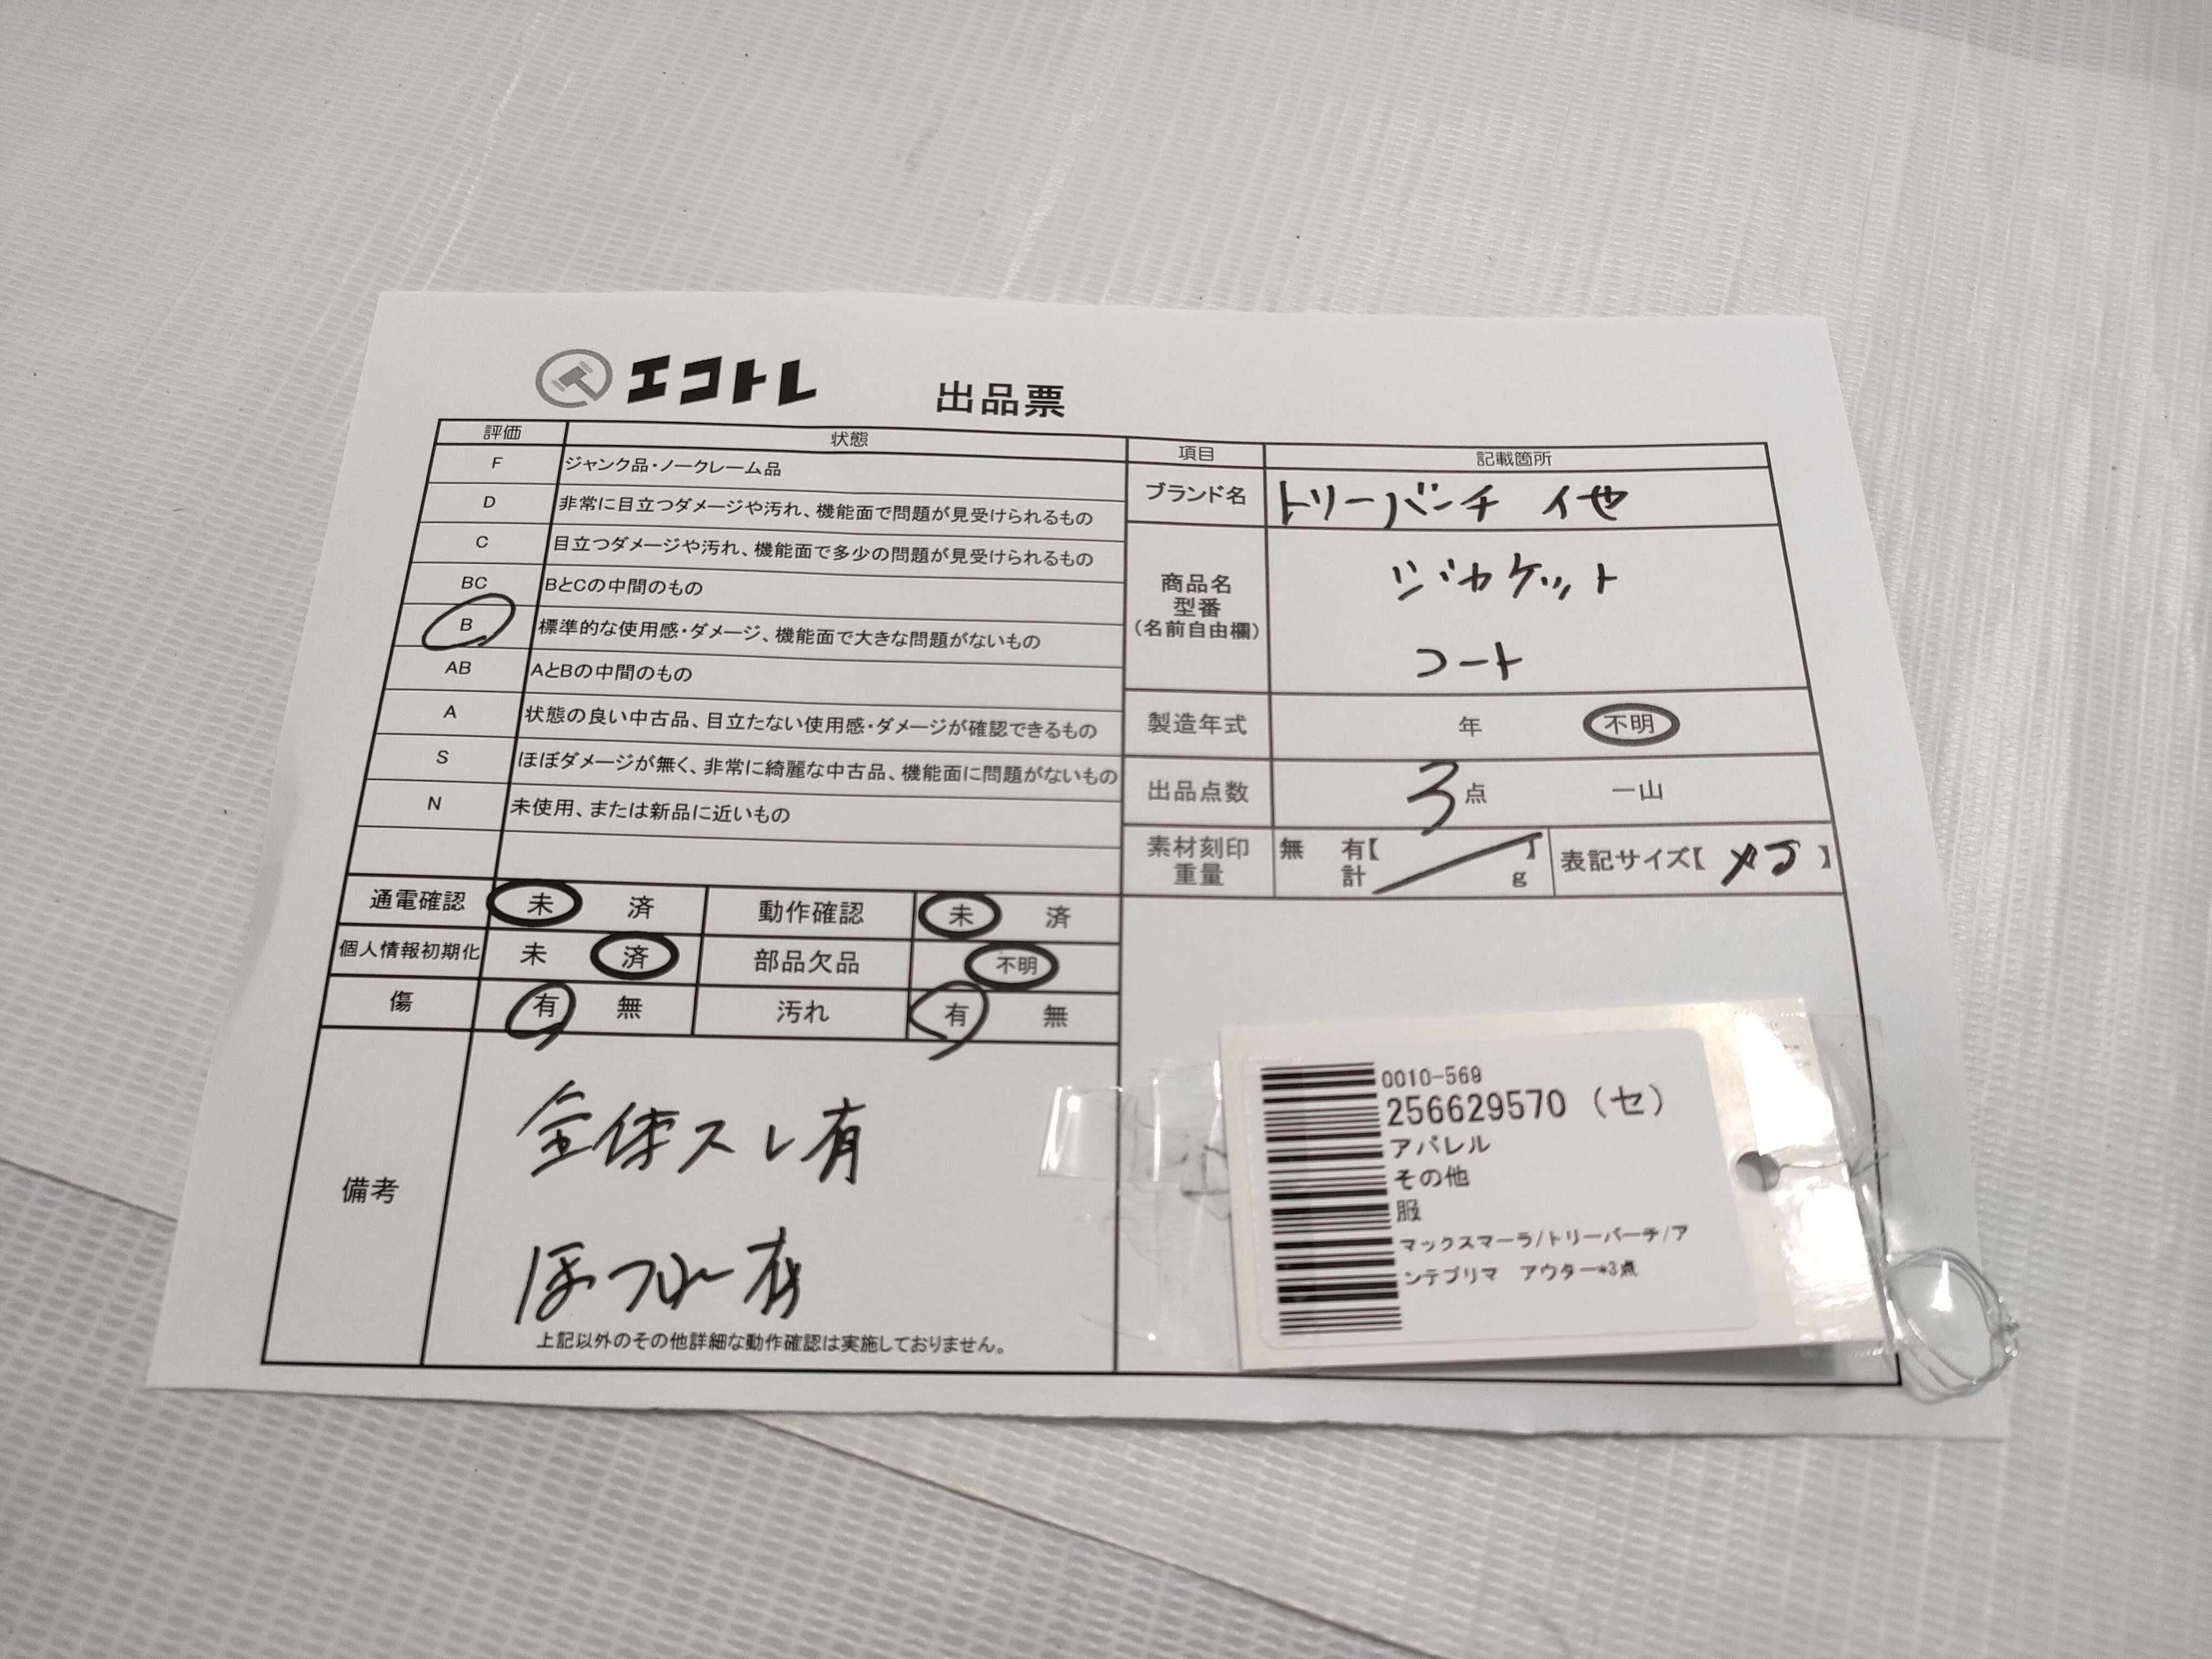 エコトレ 出品票
評価 状態
F ジャンク品・ノークレーム品
D 非常に目立つダメージや汚れ、機能面で問題が見受けられるもの
C 目立つダメージや汚れ、機能面で多少の問題が見受けられるもの
BC BとCの中間のもの
B 標準的な使用感・ダメージ、機能面で大きな問題がないもの
AB AとBの中間のもの
A 状態の良い中古品、目立たない使用感・ダメージが確認できるもの
S ほぼダメージが無く、非常に綺麗な中古品、機能面に問題がないもの
N 未使用、または新品に近いもの
項目 記載箇所
ブランド名 トリーバーチ 他
商品名
型番
(名前自由欄)
ジャケット
コート
製造年式 年 不明
出品点数 3点 一山
素材刻印 無 有【 】
重量 計 g
表記サイズ【 】
通電確認 未 済 動作確認 未 済
個人情報初期化 未 済 部品欠品 不明
傷 有 無 汚れ 有 無
備考
全体スレ有
有
上記以外のその他詳細な動作確認は実施しておりません。
0010-569
256629570 (セ)
アパレル
その他
服
マックスマーラ/トリーバーチ/ア
ンテプリマ アウター*3点